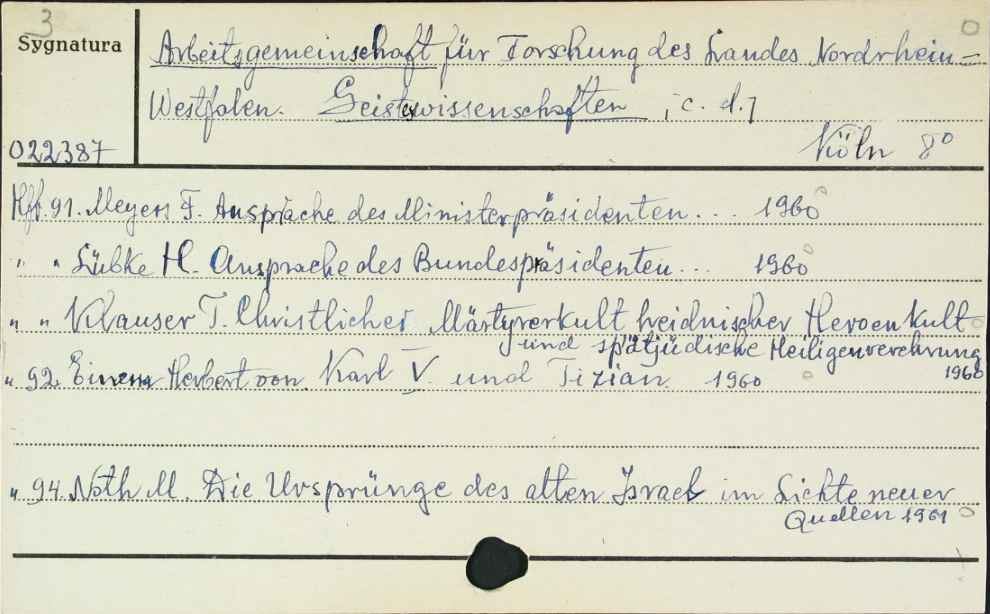 3
Sygnatura
022387
Arbeitsgemeinschaft für Forschung des Landes Nordrhein-
Westfalen. Geisteswissenschaften ; c. d. 7
Köln 8°
Hft. 91. Meyers F. Ansprache des Ministerpräsidenten... 1960
" " Lübke H. Ansprache des Bundespräsidenten... 1960
" " Klauser T. Christlicher Märtyrerkult heidnischer Heroenkult
und spätjüdische Heiligenverehrung
1960
" 92. Einem Herbert von Karl V. und Tizian 1960
" 94. Noth M. Die Ursprünge des alten Israel im Lichte neuer
Quellen 1961